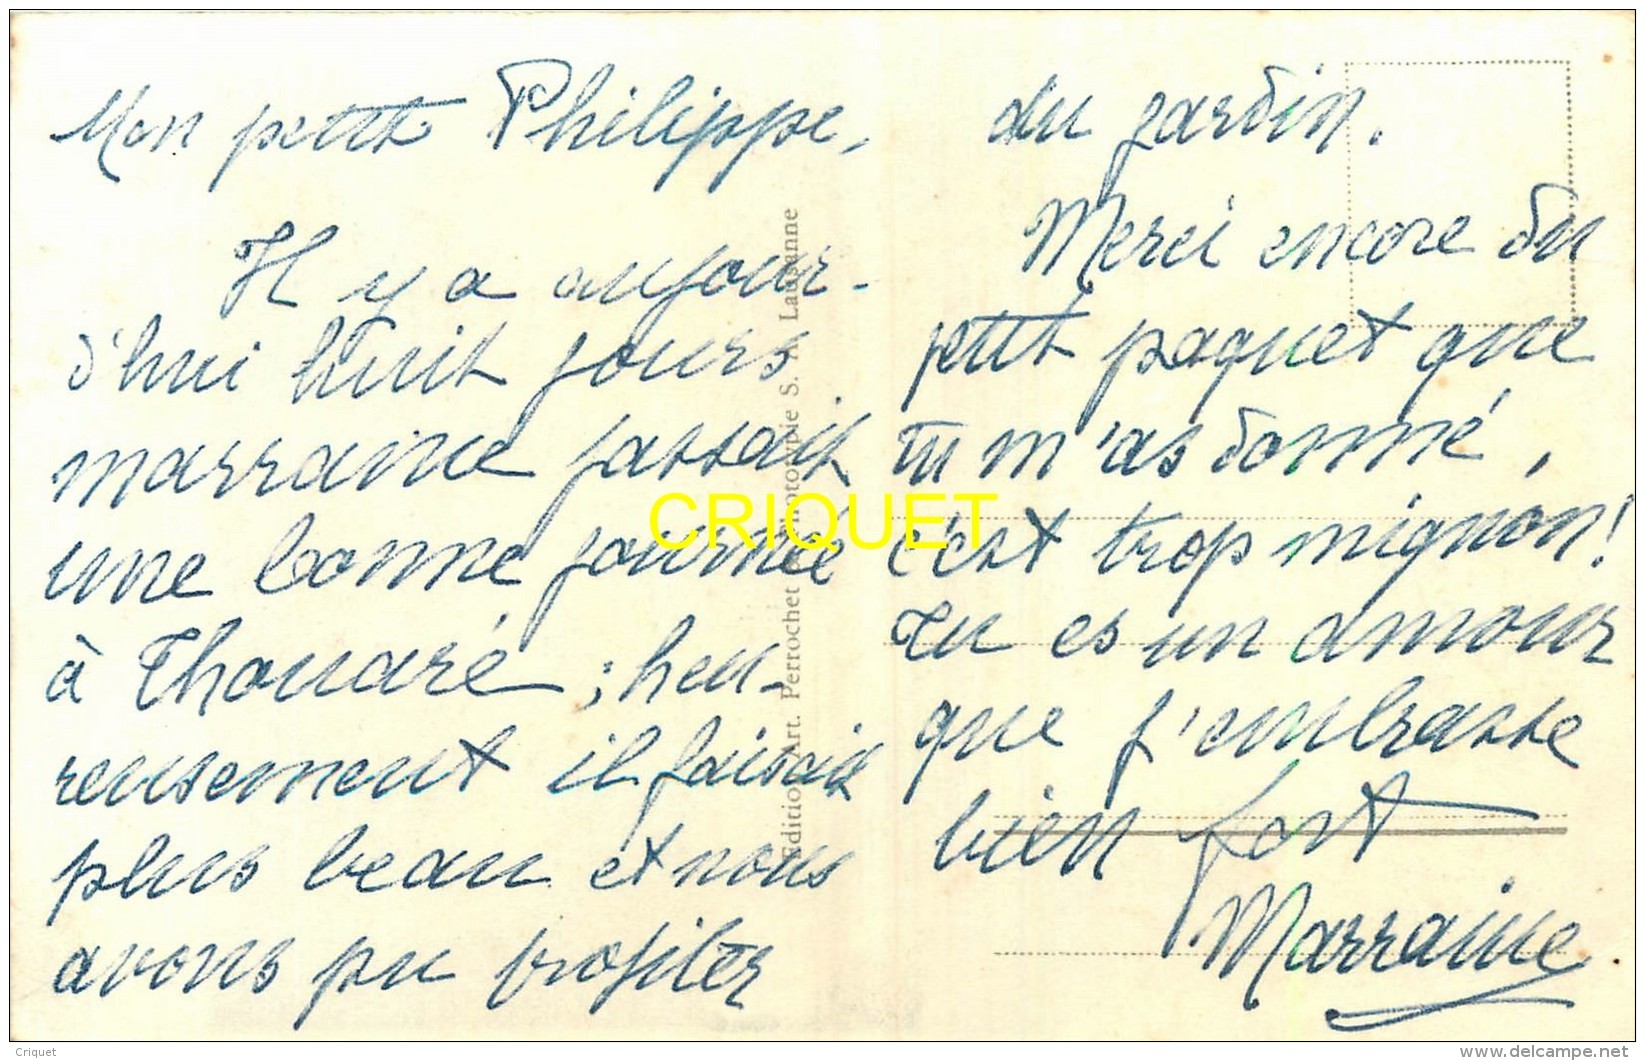 Mon petit Philippe,
Il y a aujour-
d'hui huit jours
marraine passait
une bonne journée
à Thouaré ; heu-
reusement il faisait
plus beau et nous
avons pu profiter
du jardin.
Merci encore du
petit paquet que
tu m'as donné,
c'est trop mignon!
Tu es un amour
que j'embrasse
bien fort
Marraine
Edition Art. Perrochet Phototypie S. A. Lausanne
CRIQUET
Criquet
delcampe.net